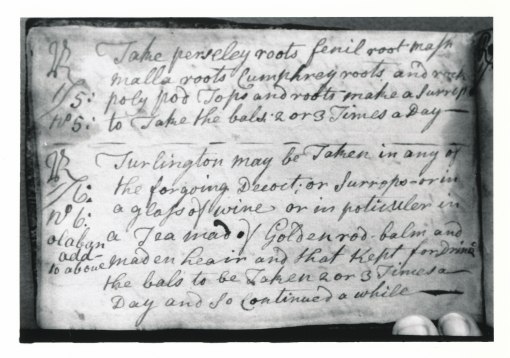 Take perseley roots fenil root mash
malla roots Cumphrey roots, and rock
poly pod Tops and roots make a Surrop
5: to Take the bals: 2 or 3 Times a Day —
No 5:
Turlington may be Taken in any of
6: the forgoing Decoct: or Surrops - or in
No 6: a glass of wine or in peticuler in
a Tea mad of Golden rod - balm and
add - maden heair and that Kept for Drink
to above the bals to be Taken 2 or 3 Times a
Day and So Continued a while —